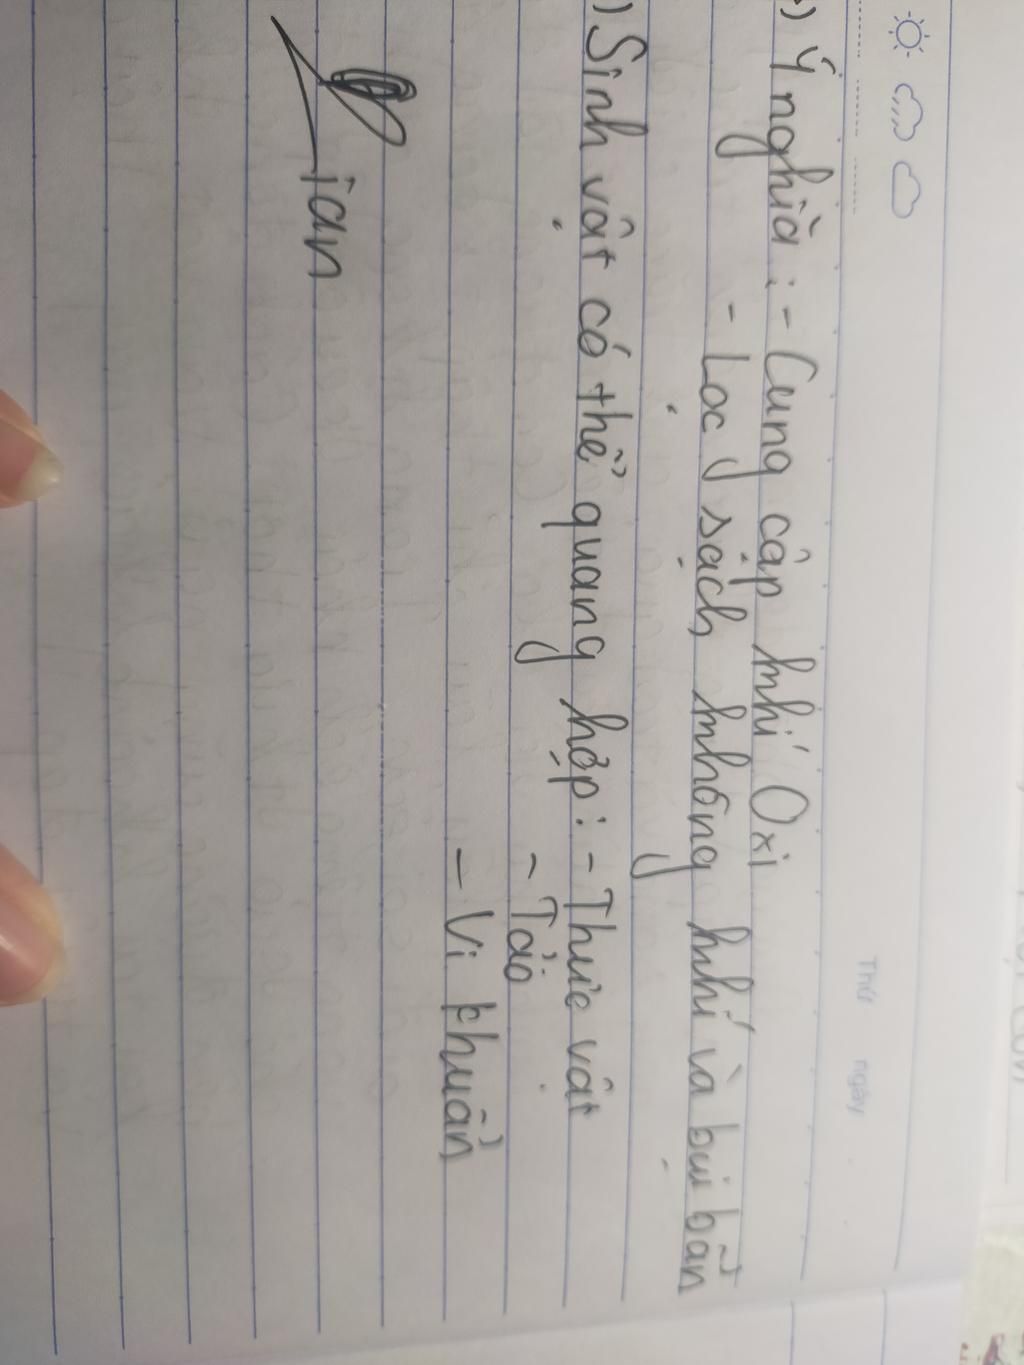 Thứ ngày
) Ý nghĩa : - Cung cấp khí Oxi
- Lọc sạch không khí và bụi bẩn
) Sinh vật có thể quang hợp : - Thực vật
- Tảo
- Vi khuẩn